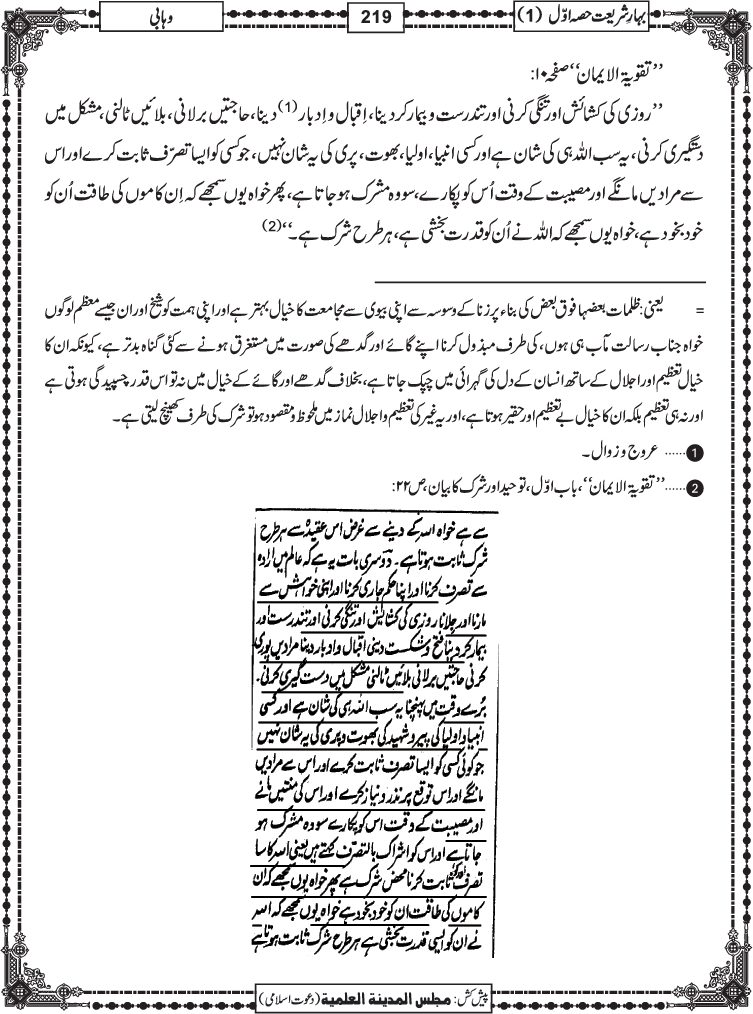 بہارِشریعت حصہ اوّل (1)
219
وہابی
’’تقویۃ الایمان‘‘ صفحہ ۱۰:
’’روزی کی کشائش اور تنگی کرنی اور تندرست و بیمار کردینا، اِقبال و اِدبار(1) دینا، حاجتیں برلانی، بلائیں ٹالنی، مشکل میں
دستگیری کرنی، یہ سب اللہ ہی کی شان ہے اور کسی انبیا، اولیا، بھوت، پری کی یہ شان نہیں، جو کسی کو ایسا تصرّف ثابت کرے اور اس
سے مرادیں مانگے اور مصیبت کے وقت اُس کو پکارے، سو وہ مشرک ہو جاتا ہے، پھر خواہ یوں سمجھے کہ اِن کاموں کی طاقت اُن کو
خود بخود ہے، خواہ یوں سمجھے کہ اللہ نے اُن کو قدرت بخشی ہے، ہر طرح شرک ہے۔‘‘(2)
= یعنی: ظلمات بعضہا فوق بعض کی بناء پر زنا کے وسوسہ سے اپنی بیوی سے مجامعت کا خیال بہتر ہے اور اپنی ہمت کو شیخ اور ان جیسے معظم لوگوں
خواہ جناب رسالت مآب ہی ہوں، کی طرف مبذول کرنا اپنے گائے اور گدھے کی صورت میں مستغرق ہونے سے کئی گناہ بدتر ہے، کیونکہ ان کا
خیال تعظیم اور اجلال کے ساتھ انسان کے دل کی گہرائی میں چپک جاتا ہے، بخلاف گدھے اور گائے کے خیال میں نہ تو اس قدر چسپیدگی ہوتی ہے
اور نہ ہی تعظیم بلکہ ان کا خیال بے تعظیم اور حقیر ہوتا ہے، اور یہ غیر کی تعظیم و اجلال نماز میں ملحوظ و مقصود ہو تو شرک کی طرف کھینچ لیتی ہے۔
1 ...... عروج و زوال۔
2 ...... ’’تقویۃ الایمان‘‘، باب اوّل، توحید اور شرک کا بیان، ص۲۲:
سے ہے خواہ اللہ کے دینے سے غرض اس عقیدہ سے ہر طرح
شرک ثابت ہوتا ہے۔ دوسری بات یہ ہے کہ عالم میں ارادہ
سے تصرف کرنا اور اپنا حکم جاری کرنا اور اپنی خواہش سے
مارنا اور جلانا روزی کی کشایش اور تنگی کرنی اور تندرست اور
بیمار کردینا فتح و شکست دینی اقبال و ادبار دینا مرادیں پوری
کرنی حاجتیں برلانی بلائیں ٹالنی مشکل میں دست گیری کرنی۔
بُرے وقت میں پہنچنا یہ سب اللہ ہی کی شان ہے اور کسی
انبیاء و اولیا کی پیر و شہید کی بھوت و پری کی یہ شان نہیں
جو کوئی کسی کو ایسا تصرف ثابت کرے اور اس سے مرادیں
مانگے اور اس توقع پر نذر و نیاز کرے اور اس کی منتیں مانے
اور مصیبت کے وقت اس کو پکارے سو وہ مشرک ہو
جاتا ہے اور اس کو اشراک بالتصرف کہتے ہیں یعنی اللہ کا سا
تصرف ثابت کرنا محض شرک ہے پھر خواہ یوں سمجھے کہ ان
کاموں کی طاقت ان کو خود بخود ہے خواہ یوں سمجھے کہ اللہ
نے ان کو ایسی قدرت بخشی ہے ہر طرح شرک ثابت ہوتا ہے
پیش کش: مجلس المدینة العلمیة (دعوت اسلامی)